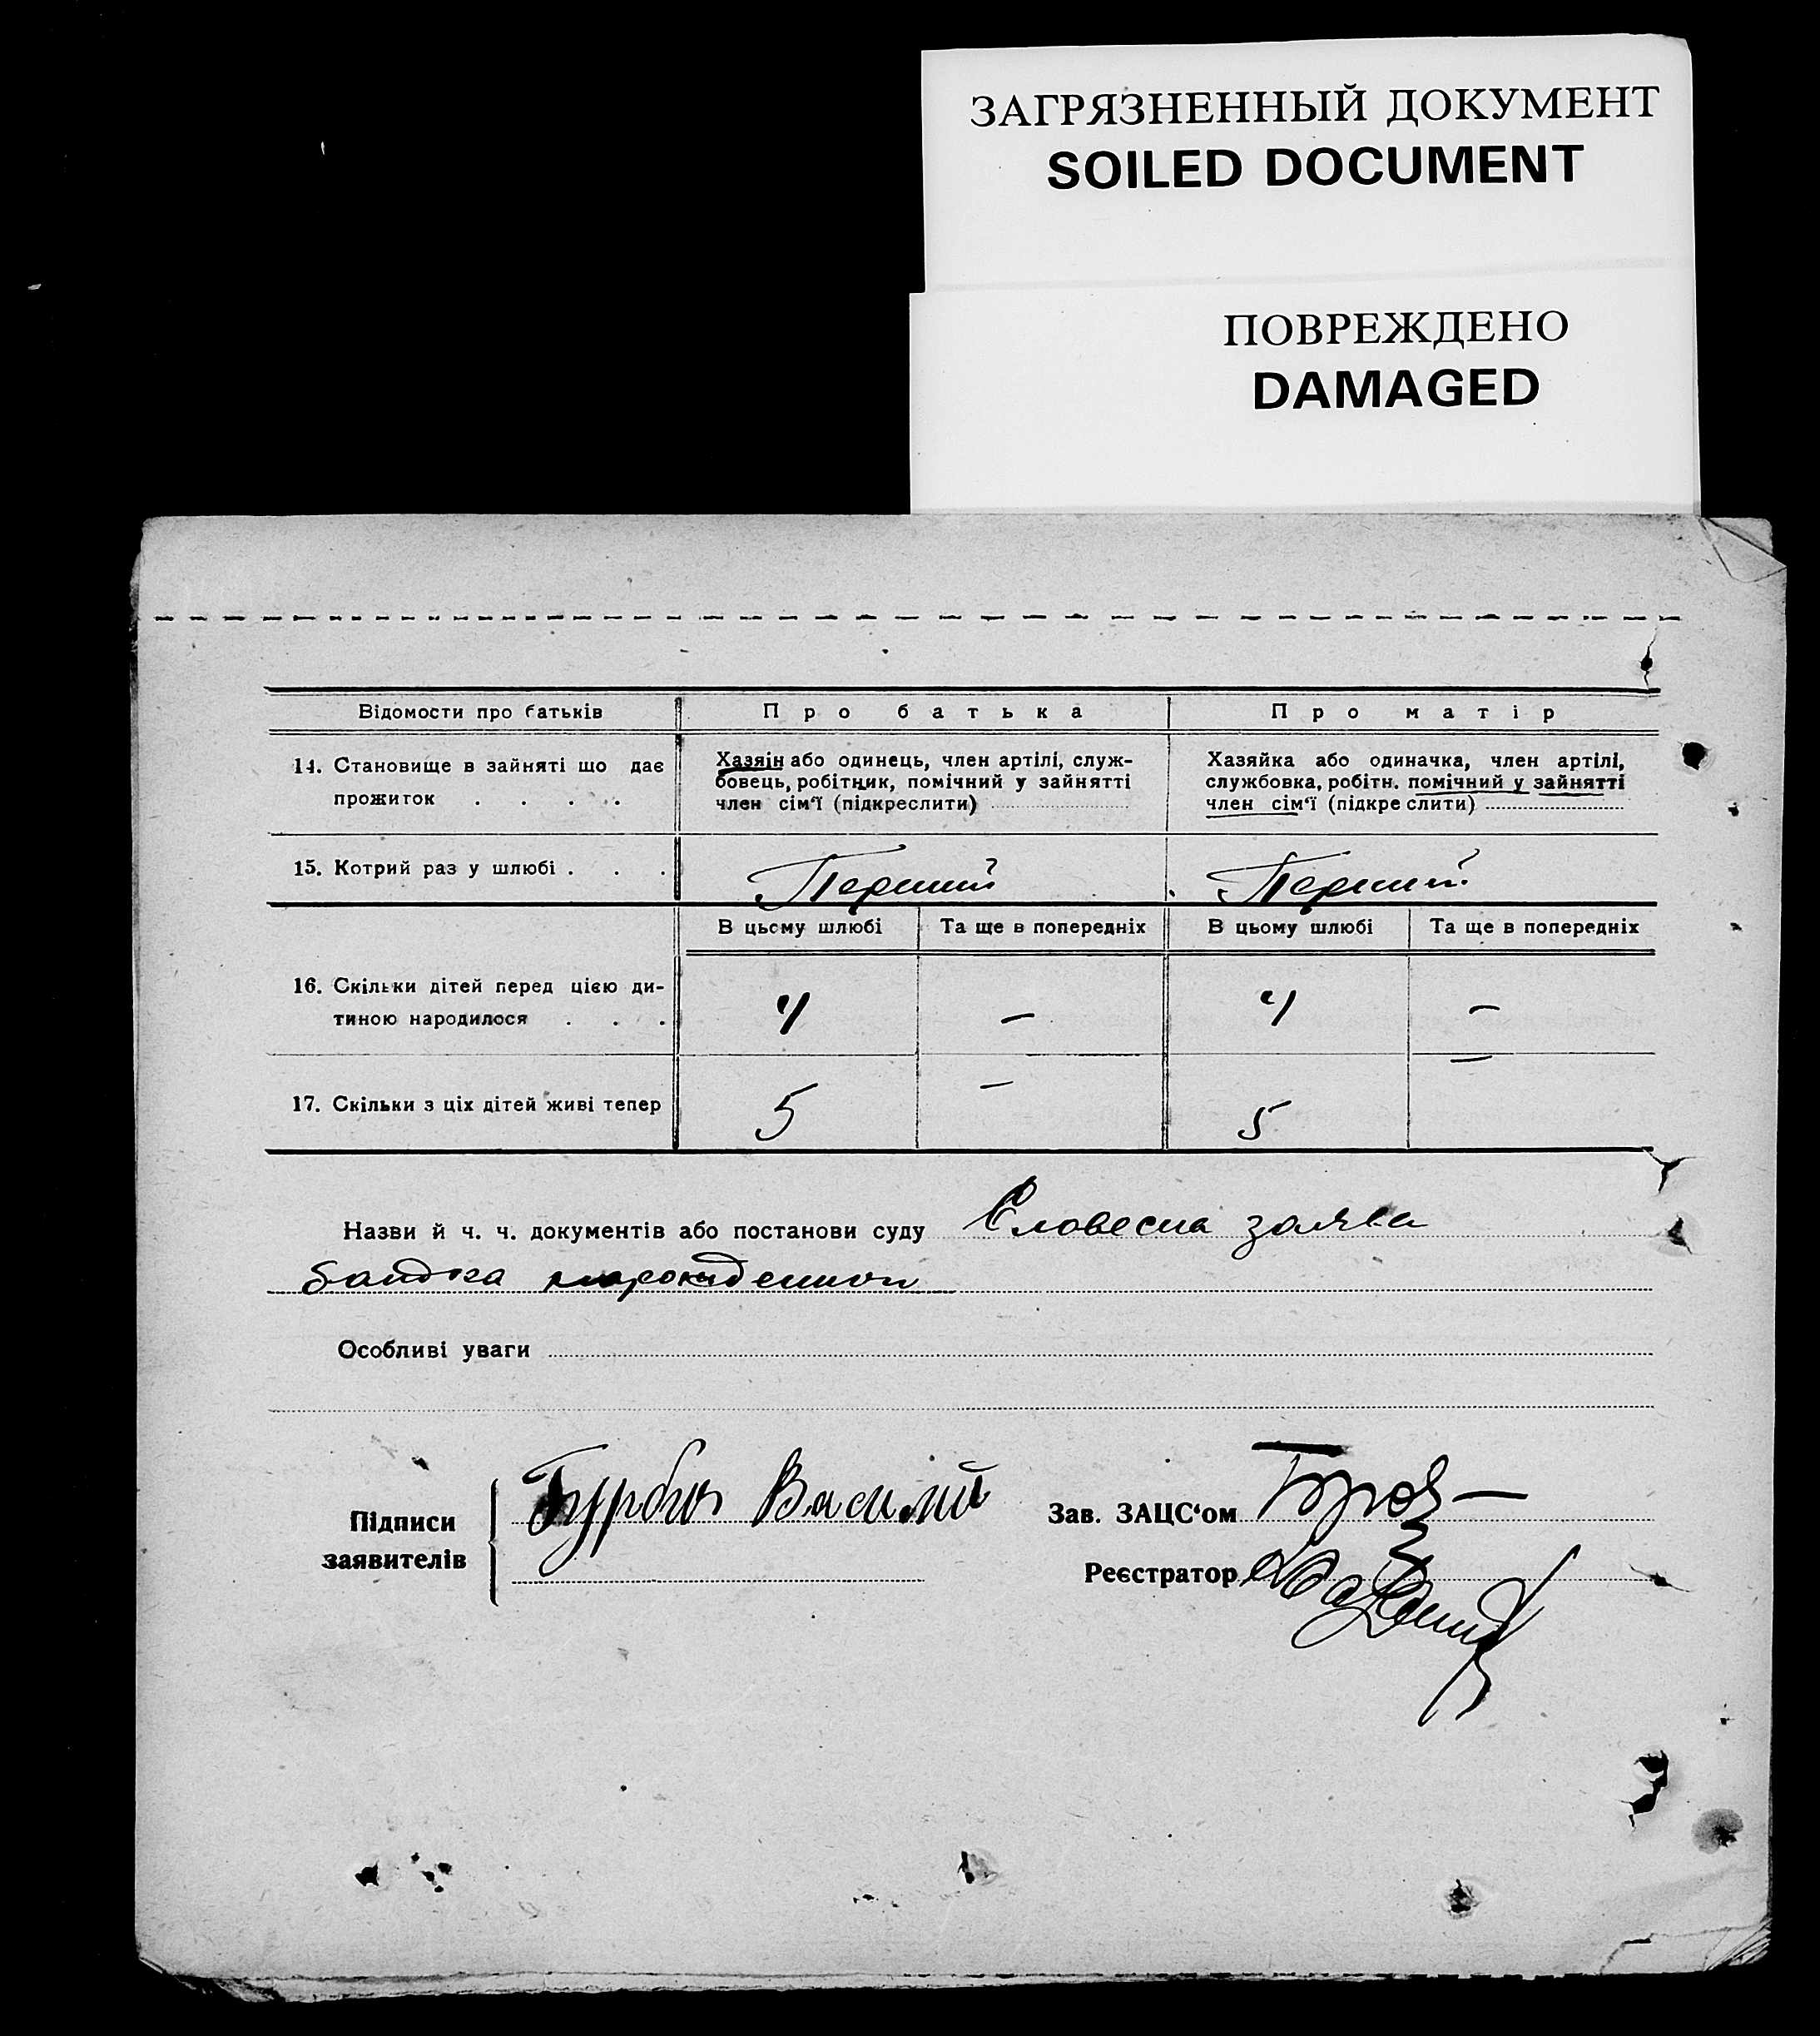 ЗАГРЯЗНЕННЫЙ ДОКУМЕНТ
SOILED DOCUMENT
ПОВРЕЖДЕНО
DAMAGED
Відомости про батьків
Про батька
Про матір
14. Становище в зайняті що дає
прожиток . . . .
Хазяін або одинець, член артілі, служ-
бовець, робітник, помічний у зайнятті
член сім‘ї (підкреслити)
Хазяйка або одиначка, член артілі,
службовка, робітн. помічний у зайнятті
член сім‘ї (підкреслити)
15. Котрий раз у шлюбі . . .
Перший
Перший
В цьому шлюбі
Та ще в попередніх
В цьому шлюбі
Та ще в попередніх
16. Скільки дітей перед цією ди-
тиною народилося . . .
4
—
4
—
17. Скільки з ціх дітей живі тепер
5
—
5
—
Назви й ч. ч. документів або постанови суду Словесна заява
Особливі уваги
Підписи
заявителів
Василий
Зав. ЗАЦС‘ом
Реєстратор